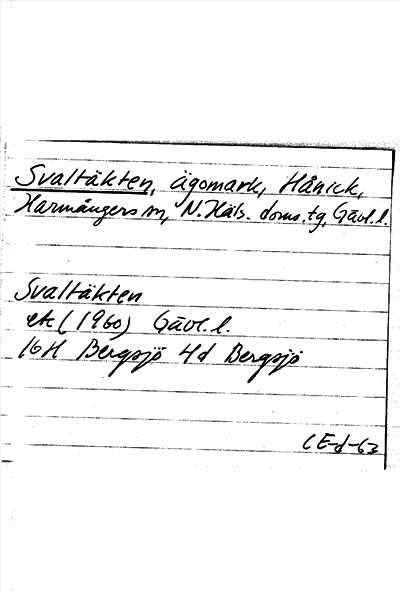 Svaltäkten, ägomark, Hånick,
Harmångers sn, N. Häls. doms.tg, Gävl.l.
Svaltäkten
ek (1960) Gävl.l.
16H Bergsjö 4d Bergsjö
CE-d-63